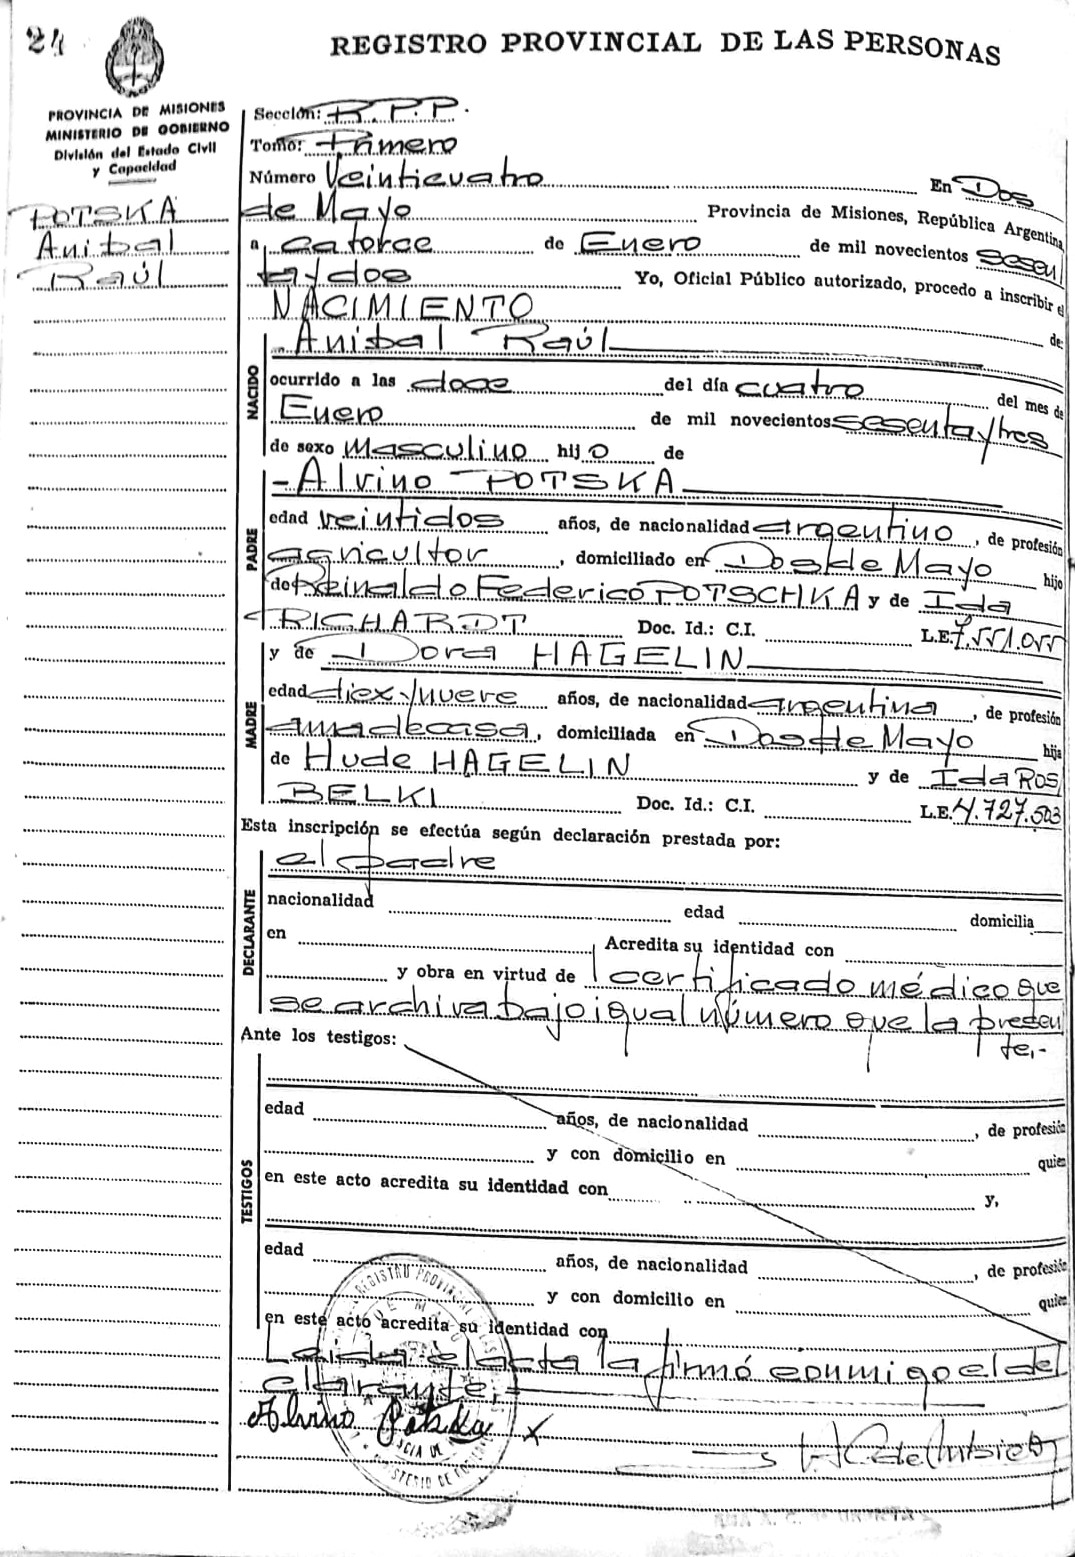 24
REGISTRO PROVINCIAL DE LAS PERSONAS
PROVINCIA DE MISIONES
MINISTERIO DE GOBIERNO
División del Estado Civil
y Capacidad
POTSKA
Anibal
Raúl
Sección: R.P.P.
Tomo: Primero
Número Veinticuatro En Dos
de Mayo Provincia de Misiones, República Argentina
a catorce de Enero de mil novecientos sesen
taydos Yo, Oficial Público autorizado, procedo a inscribir el
NACIMIENTO de
NACIDO
Anibal Raúl
ocurrido a las doce del día cuatro del mes de
Enero de mil novecientos sesentaytres
de sexo Masculino hijo de
PADRE
- Alvino POTSKA
edad veintidos años, de nacionalidad argentino, de profesión
agricultor, domiciliado en Dos de Mayo hijo
de Reinaldo Federico POTSCHKA y de Ida
RICHARDT Doc. Id.: C.I. L.E. 7.551.055
MADRE
y de Dora HAGELIN
edad diex y nueve años, de nacionalidad argentina, de profesión
amadecasa, domiciliada en Dos de Mayo hija
de Hude HAGELIN y de Ida Ros
BELKI Doc. Id.: C.I. L.E. 4.727.503
Esta inscripción se efectúa según declaración prestada por:
DECLARANTE
el padre
nacionalidad edad domicilia
en Acredita su identidad con
y obra en virtud de certificado médico que
se archiva bajo igual número que la presen
te,-
Ante los testigos:
TESTIGOS
edad años, de nacionalidad, de profesión
y con domicilio en quien
en este acto acredita su identidad con y,
edad años, de nacionalidad, de profesión
y con domicilio en quien
en este acto acredita su identidad con
Leida el acta la firmó conmigo el de
clarante,-
Alvino Potska X
REGISTRO PROVINCIAL DE LAS